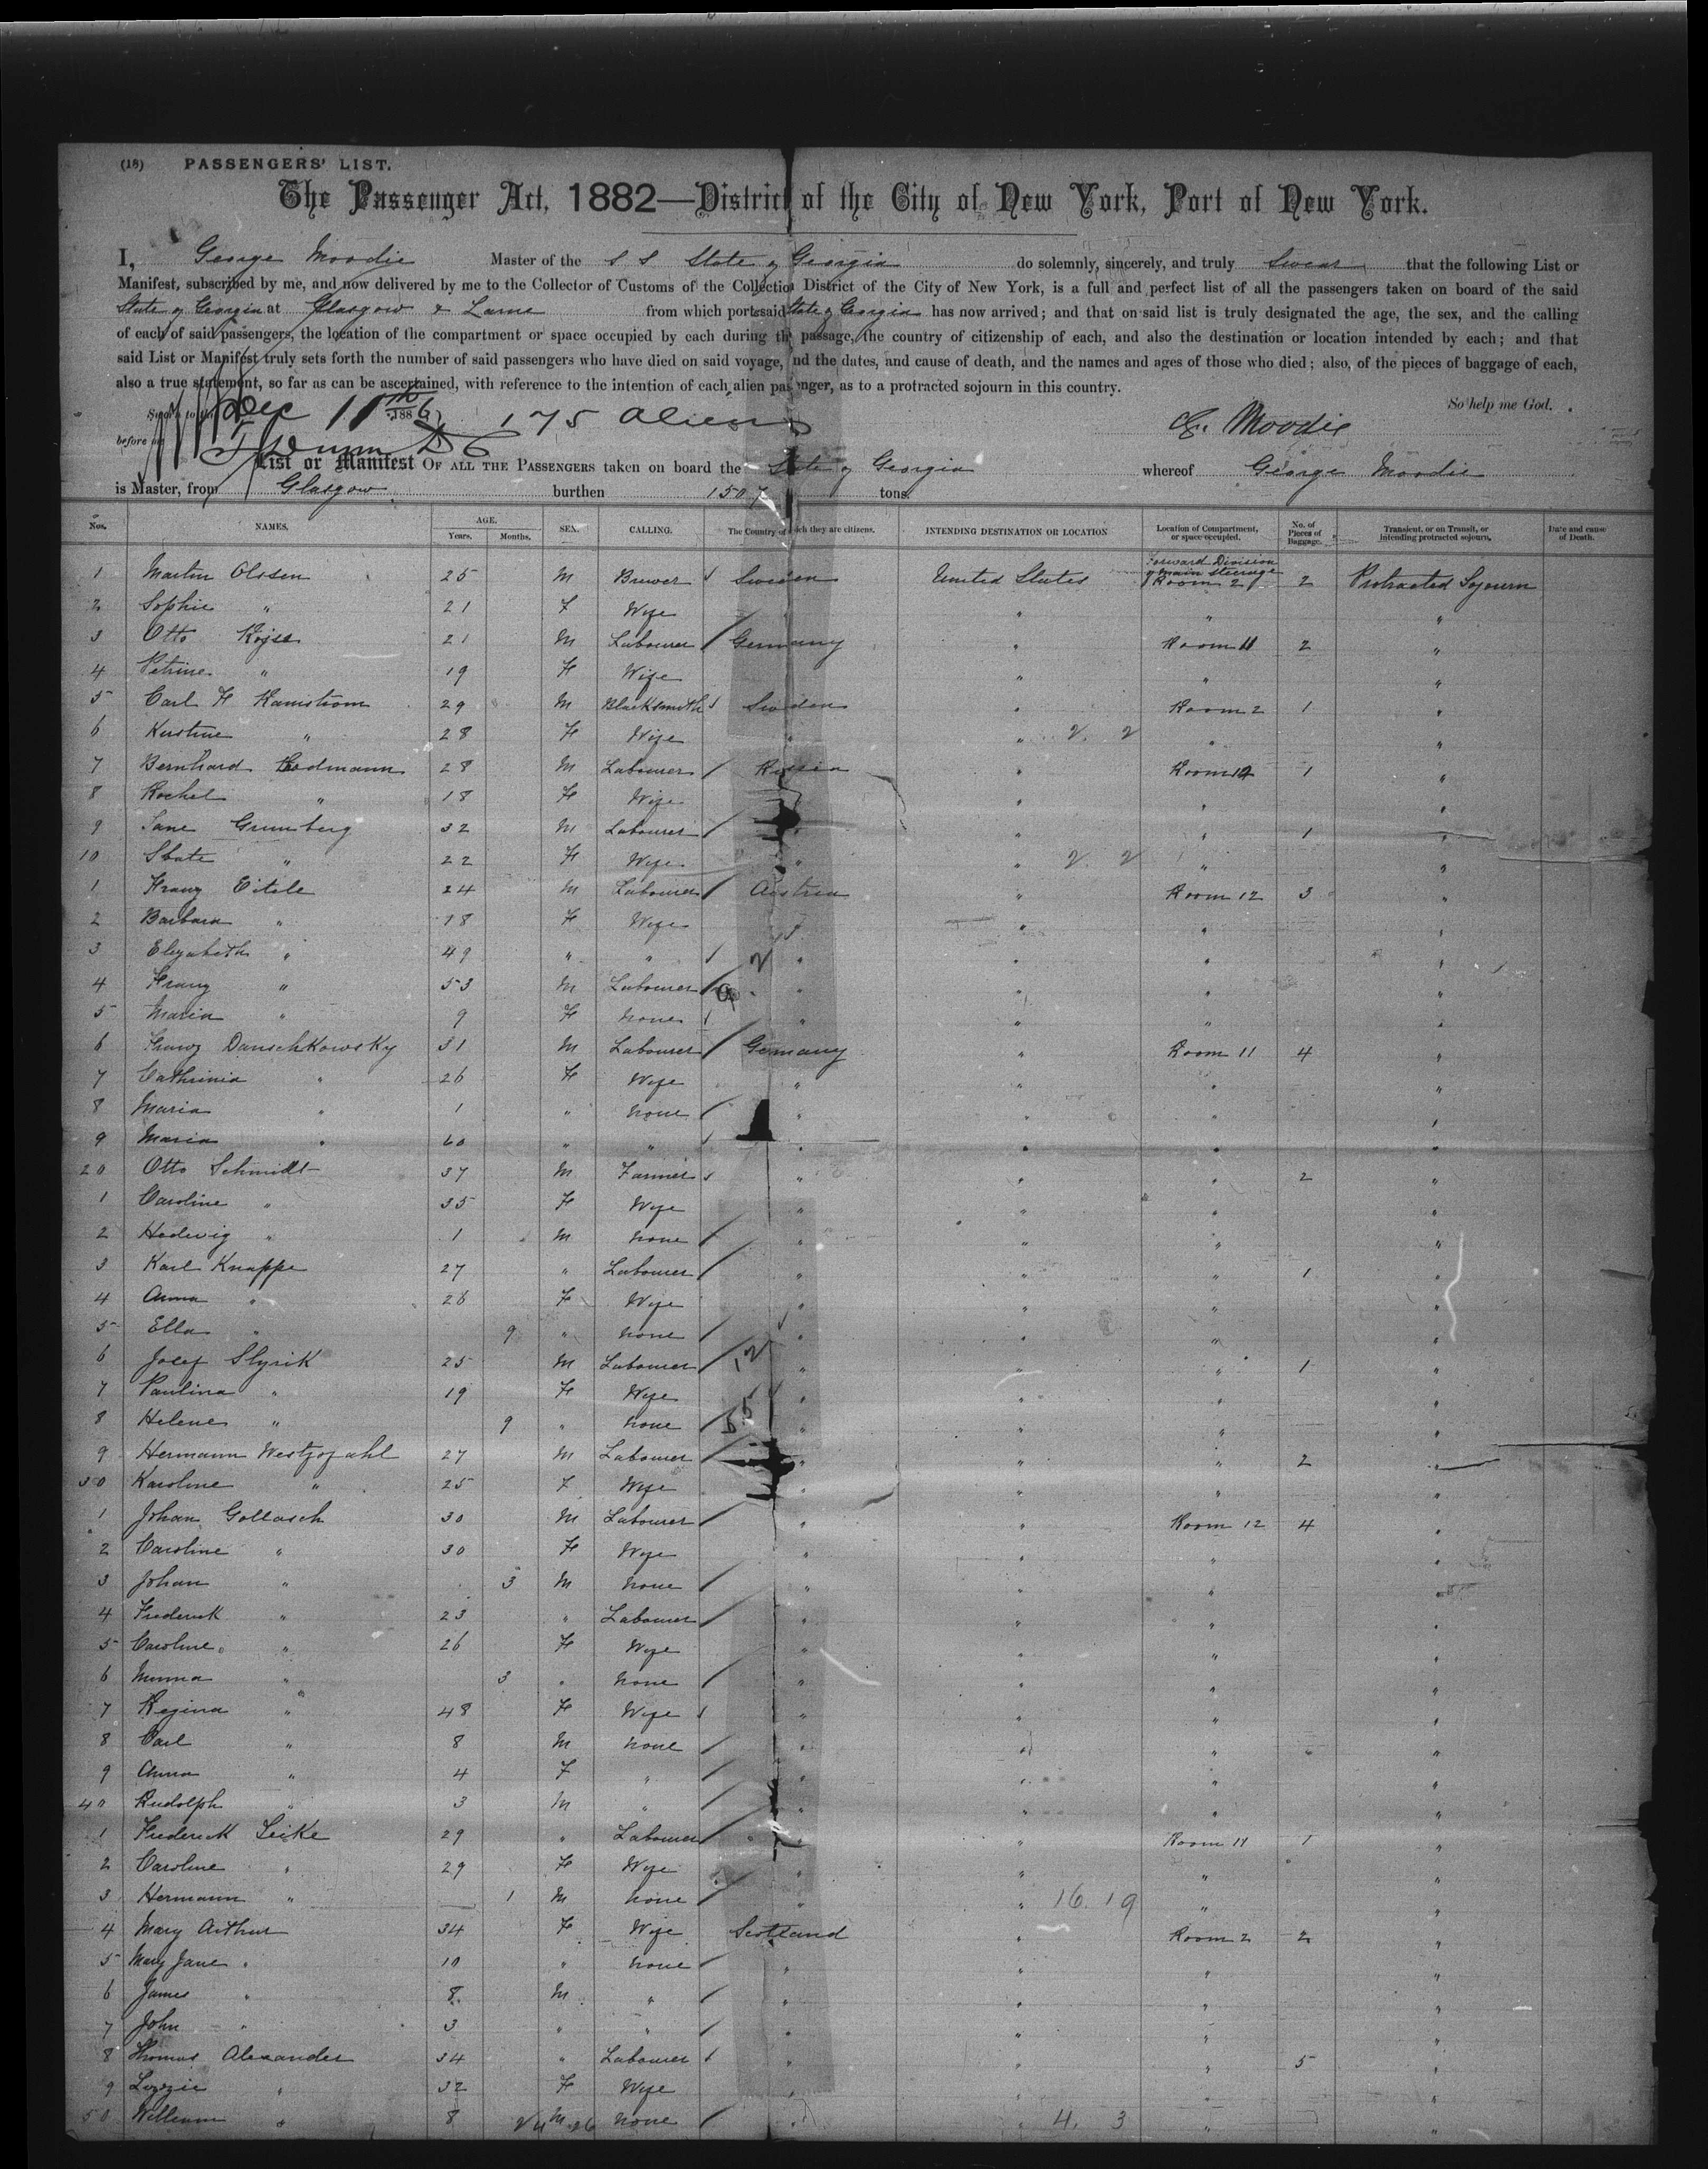 (18) PASSENGERS' LIST.
The Passenger Act, 1882—District of the City of New York, Port of New York.
I, George Moodie Master of the S S State of Georgia do solemnly, sincerely, and truly Swear that the following List or
Manifest, subscribed by me, and now delivered by me to the Collector of Customs of the Collection District of the City of New York, is a full and perfect list of all the passengers taken on board of the said
State of Georgia at Glasgow & Larne from which port said State of Georgia has now arrived; and that on said list is truly designated the age, the sex, and the calling
of each of said passengers, the location of the compartment or space occupied by each during the passage, the country of citizenship of each, and also the destination or location intended by each; and that
said List or Manifest truly sets forth the number of said passengers who have died on said voyage, and the dates, and cause of death, and the names and ages of those who died; also, of the pieces of baggage of each,
also a true statement, so far as can be ascertained, with reference to the intention of each alien passenger, as to a protracted sojourn in this country.
So help me God.
Sworn to this Dec 11th 1886 175 Aliens G. Moodie
before me
List or Manifest OF ALL THE PASSENGERS taken on board the State of Georgia whereof George Moodie
is Master, from Glasgow burthen 1507 tons.
Nos. NAMES. AGE. Years. Months. SEX. CALLING. The Country of which they are citizens. INTENDING DESTINATION OR LOCATION Location of Compartment, or space occupied. No. of Pieces of Baggage. Transient, or on Transit, or intending protracted sojourn. Date and cause of Death.
1 Martin Olssen 25 M Brewer Sweden United States Forward Division of main steerage Room 2 2 Protracted Sojourn
2 Sophie " 21 F Wife " " "
3 Otto 21 M Labourer Germany " Room 11 2 "
4 Petrine " 19 F Wife " " "
5 Carl F Ramstrom 29 M Blacksmith Sweden " Room 2 1 "
6 Kirstine " 28 F Wife " " 2 2 " "
7 Bernhard 28 M Labourer Russia " Room 12 1 "
8 Rochel " 18 F Wife " " "
9 Grunberg 32 M Labourer " " " 1 "
10 " 22 F Wife " " 2 2 " "
1 Franz Eitele 24 M Labourer Austria " Room 12 3 "
2 Barbara " 18 F Wife " " "
3 Elizabeth " 49 " " " " " "
4 Franz " 53 M Labourer " " " "
5 Maria " 9 F none " " " "
6 Franz Danschkowsky 31 M Labourer Germany " Room 11 4 "
7 Cathrinia " 26 F Wife " " " "
8 Maria " 1 " none " " " "
9 Maria " 60 " " " " " "
20 Otto Schmidt 37 M Farmer " " " 2 "
1 Caroline " 35 F Wife " " " "
2 Hedwig " 1 M none " " " "
3 Karl Knappe 27 " Labourer " " " 1 "
4 Anna " 26 F Wife " " " "
5 Ella " 9 " none " " " "
6 Josef Slyrik 25 M Labourer " " " 1 "
7 Paulina " 19 F Wife " " " "
8 Helene " 9 " none " " " "
9 Hermann Westphahl 27 M Labourer " " " 2 "
30 Karoline " 25 F Wife " " " "
1 Johan Gollasch 30 M Labourer " " Room 12 4 "
2 Caroline " 30 F Wife " " " "
3 Johan " 3 M none " " " "
4 Frederick " 23 " Labourer " " " "
5 Caroline " 26 F Wife " " " "
6 Minna " 3 " none " " " "
7 Regina " 48 F Wife " " " "
8 Carl " 8 M none " " " "
9 Anna " 4 F " " " " "
40 Rudolph " 3 M " " " " "
1 Frederick Leike 29 " Labourer " " Room 11 1 "
2 Caroline " 29 F Wife " " " "
3 Hermann " 1 M none " " 16. 19 " "
4 Mary Arthur 34 F Wife Scotland " Room 2 2 "
5 Mary Jane " 10 " none " " " "
6 James " 8 M " " " " "
7 John " 3 " " " " " "
8 Thomas Alexander 34 " Labourer " " " 5 "
9 Lizzie " 32 F Wife " " " "
50 William " 8 M none " " 4. 3 " "
24 26